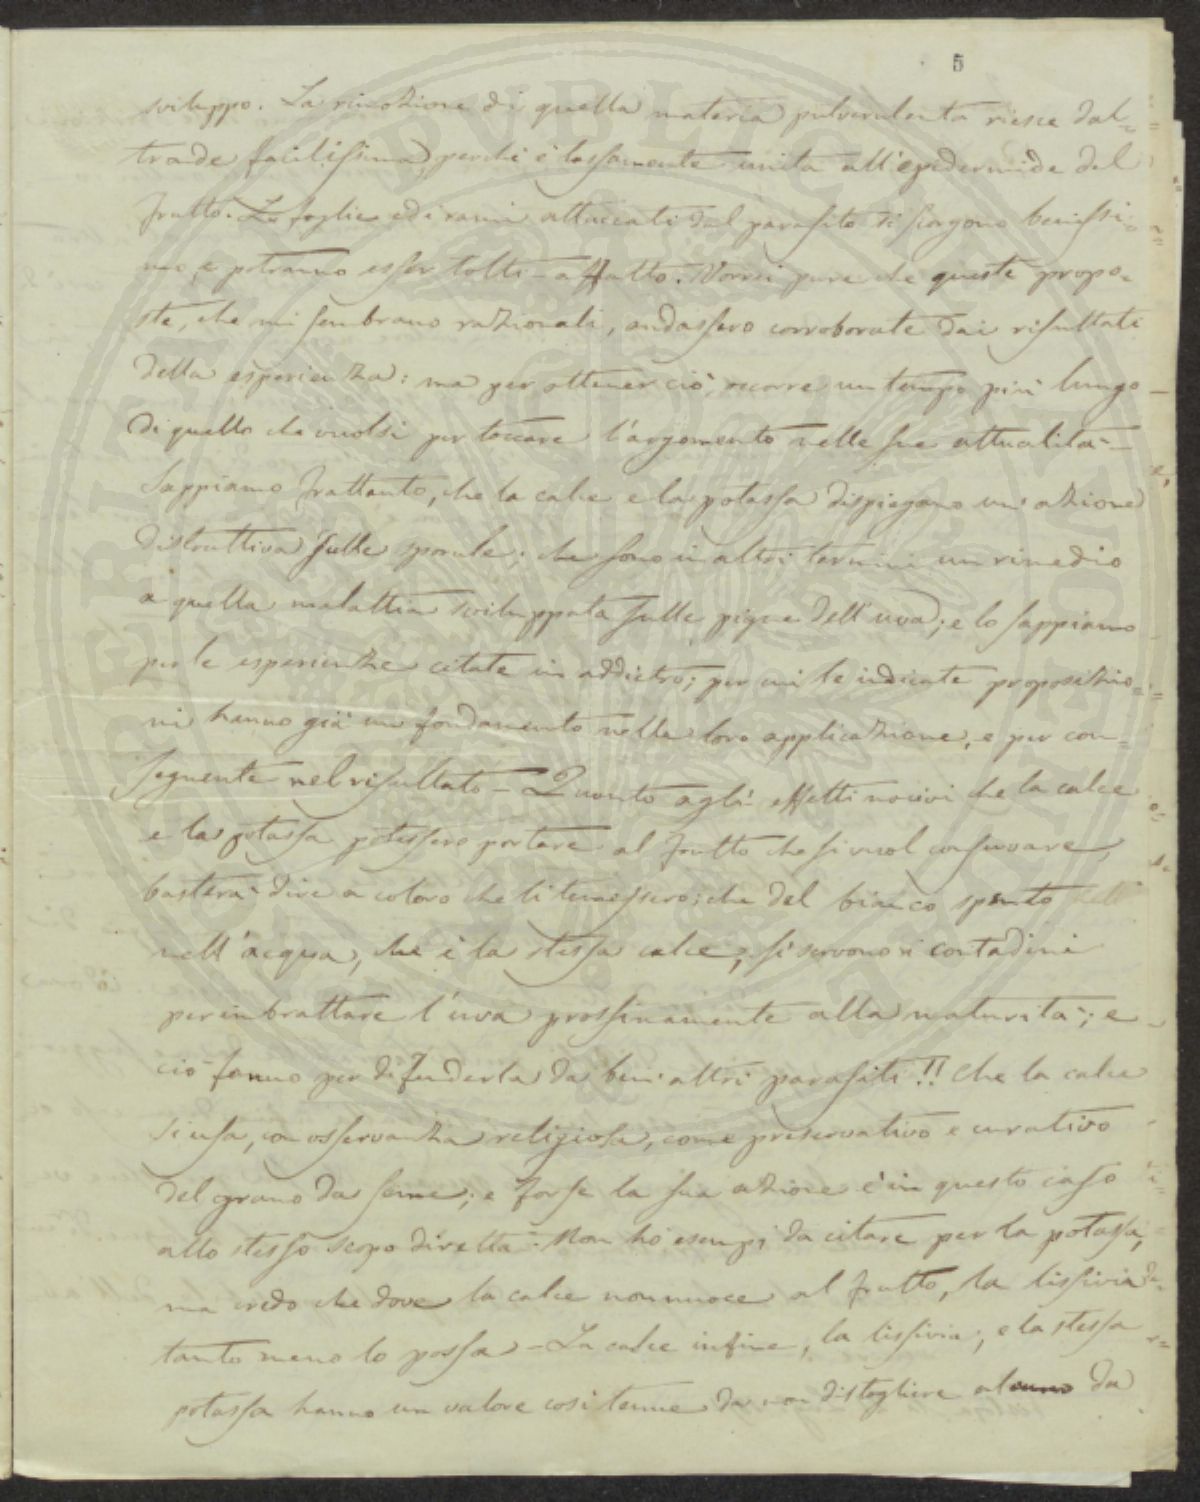 5
sviluppo. La rimozione di quella materia pulverulenta riesce dal=
tronde facilissima, perchè è lassamente unita all'epidermide del
frutto. Le foglie ed i rami attaccati dal parasito si scorgono benissi=
mo, e potranno esser tolti affatto. Vorrei pure che queste propo=
ste, che mi sembrano razionali, andassero corroborate dai risultati
della esperienza: ma per ottener ciò, occorre un tempo più lungo
di quello che vuolsi per toccare l'argomento nelle sue attualità –
Sappiamo frattanto, che la calce e la potassa dispiegano un'azione
distruttiva sulle sporule; che sono in altri termini un rimedio
a quella malattia sviluppata sulle pigne dell'uva; e lo sappiamo
per le esperienze citate in addietro; per cui le indicate proposizio=
ni hanno già un fondamento nella loro applicazione, e per con=
seguente nel risultato – Quanto agli effetti nocivi che la calce
e la potassa potessero portare al frutto che si vuol conservare,
basterà dire a coloro che li temessero; che del bianco spento
nell'acqua, che è la stessa calce, si servono i contadini
per imbrattare l'uva prossimamente alla maturità; e
ciò fanno per difenderla da ben altri parasiti!! Che la calce
si usa, con osservanza religiosa, come preservativo e curativo
del grano da seme; e forse la sua azione è in questo caso
allo stesso scopo diretta. Non ho esempi da citare per la potassa,
ma credo che dove la calce non nuoce al frutto, la lissivia
tanto meno lo possa – La calce infine, la lissivia, e la stessa
potassa hanno un valore così tenue da non distogliere alcuno da